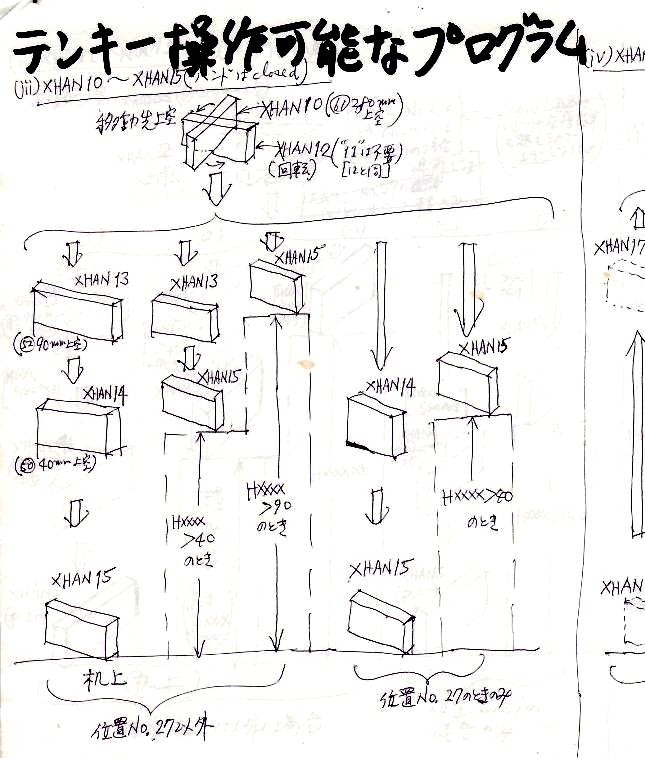 テンキー操作可能なプログラム
(iii) XHAN10 ～ XHAN15 (ハンドはclosed)
(iv) XHAN
移動先上空
XHAN10 (61 380mm
上空)
XHAN12 ("11"は不要)
(回転) [12と同]
XHAN13
XHAN13
XHAN15
XHAN17
(52 90mm上空)
XHAN14
XHAN15
XHAN14
XHAN15
(50 40mm上空)
HXXXX
>40
のとき
HXXXX
>90
のとき
HXXXX>40
のとき
XHAN15
XHAN15
XHAN
机上
位置No.27以外
位置No.27のときのみ